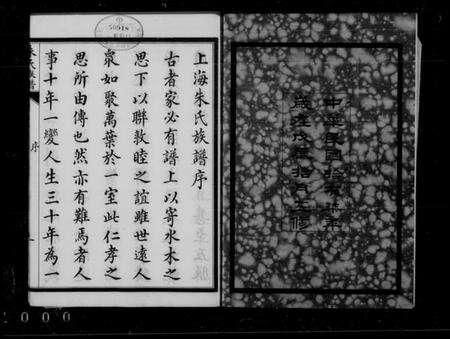 中華民國拾柒年
歲在戊辰拾月重修
上海朱氏族譜序
古者家必有譜上以寄水木之
思下以聯敦睦之誼雖世遠人
衆如聚萬葉於一室此仁孝之
思所由傳也然亦有難焉者人
事十年一變人生三十年為一
朱氏族譜
序
一
50918
000